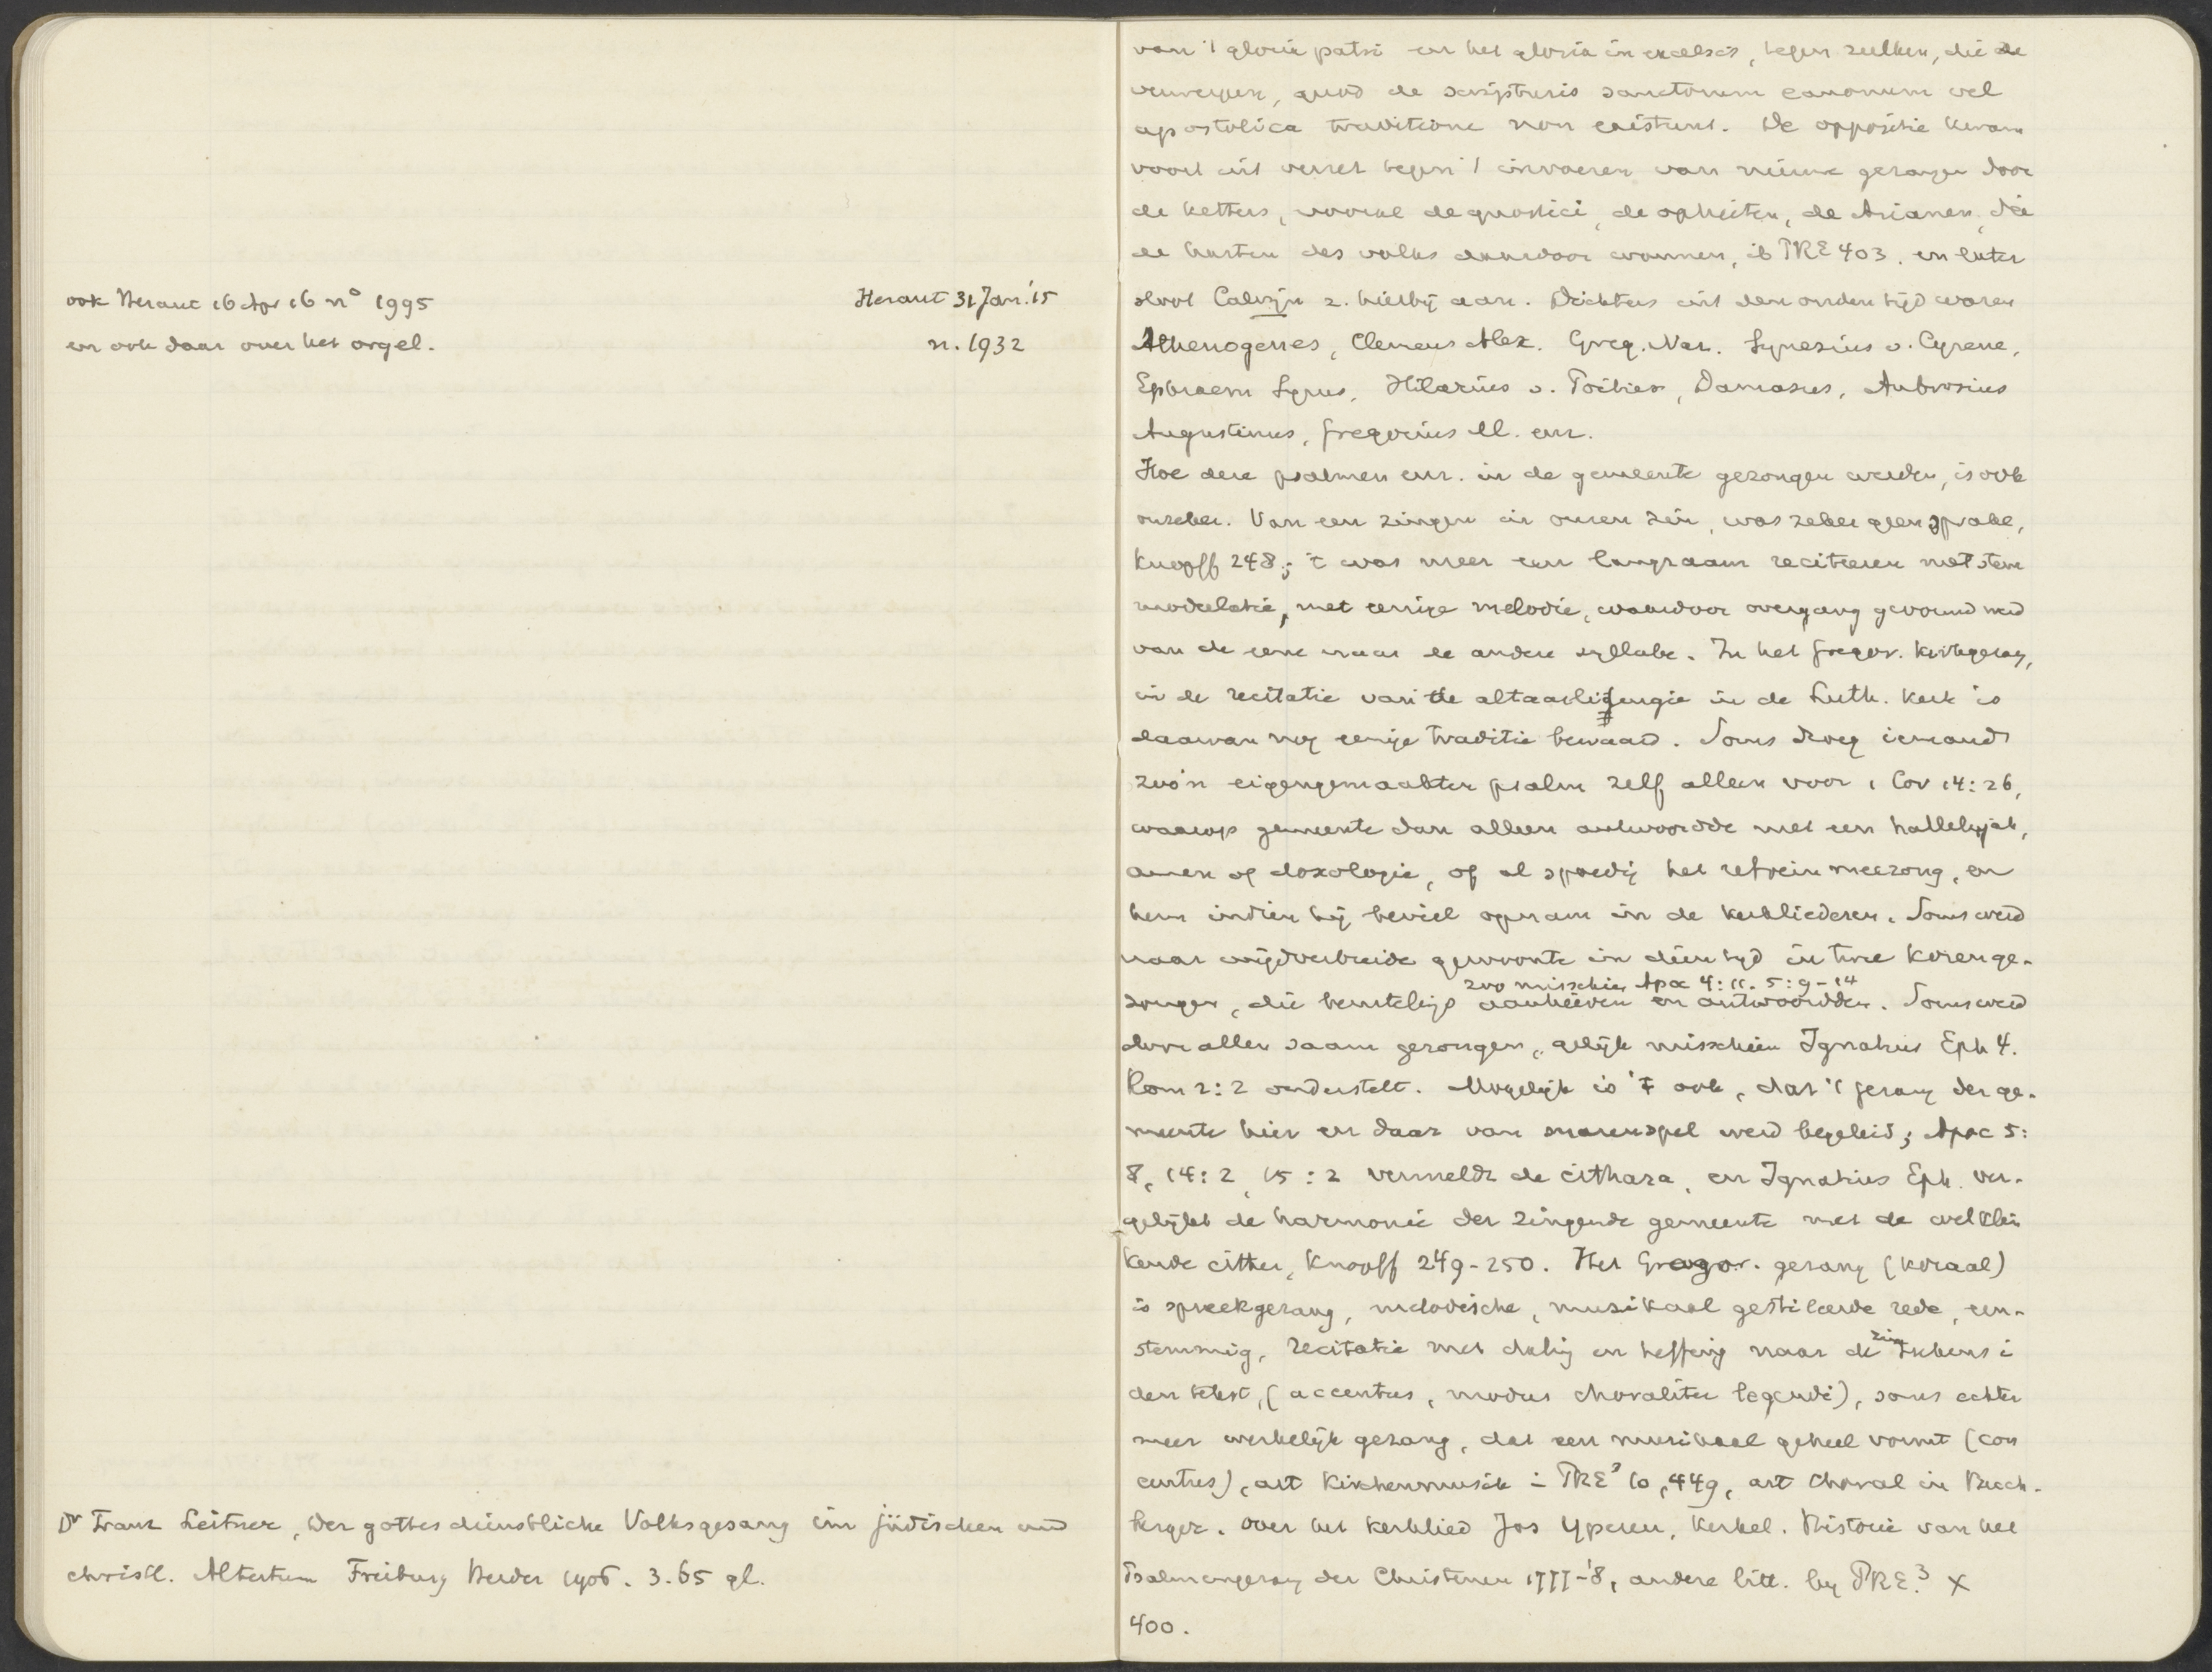 ook Heraut 16 Apr 16 n° 1995
en ook daar over het orgel.
Heraut 31 Jan. '15
n. 1932
Dr Franz Leitner, Der gottesdienstliche Volksgesang im jüdischen und
christl. Altertum Freiburg Herder 1906. 3.65 gl.
van 't gloria patri en het gloria in excelsis, tegen zulken, die ze
verwerpen, quod de scripturis sanctorum canonum vel
apostolica traditione non existunt. De oppositie kwam
voort uit verzet tegen 't invoeren van nieuwe gezangen door
de ketters, vooral de gnostici, de ophieten, de Arianen, die
de harten des volks daardoor wonnen, ib PRE 403. en later
sloot Calvijn z. hierbij aan. Dichters uit den ouden tijd waren
Athenogenes, Clemens Alex. Greg. Naz. Synesius v. Cyrene,
Ephraem Syrus, Hilarius v. Poitiers, Damasus, Ambrosius
Augustinus, Gregorius M. enz.
Hoe deze psalmen enz. in de gemeente gezongen werden, is ook
onzeker. Van een zingen in onzen zin, was zeker geen sprake,
Knopff 248; 't was meer een langzaam reciteeren met stem
modulatie, met eenige melodie, waardoor overgang gevormd werd
van de eene naar de andere syllabe. In het Gregor. kerkgezang,
in de recitatie van de altaarliturgie in de Luth. Kerk is
daarvan nog eenige traditie bewaard. Soms droeg iemand
zoo'n eigengemaakten psalm zelf alleen voor 1 Cor 14:26,
waarop gemeente dan alleen antwoordde met een hallelujah,
amen of doxologie, of al spoedig het refrein meezong, en
hem indien hij beviel opnam in de kerkliederen. Soms werd
naar wijdverbreide gewoonte in dien tijd in twee koren ge-
zoo misschien Apoc 4:11. 5:9-14
zongen, die beurtelings aanhieven en antwoordden. Soms werd
door allen saam gezongen, gelijk misschien Ignatius Eph 4.
Rom 2:2 onderstelt. Mogelijk is 't ook, dat 't gezang der ge-
meente hier en daar van snarenspel werd begeleid; Apoc 5:
8, 14:2, 15:2 vermeldt de cithara, en Ignatius Eph. ver-
gelijkt de harmonie der zingende gemeente met de welklin
kende cither, Knopff 249-250. Het Gregor. gezang (koraal)
is spreekgezang, melodische, muzikaal gestileerde rede, een-
stemmig, recitatie met daling en heffing naar de zin teekens i
den tekst, (accentus, modus choraliter legendi), soms echter
meer werkelijk gezang, dat een muzikaal geheel vormt (con
centus), art Kirchenmusik in PRE³ 10, 449, art Choral in Buch-
berger. Over het kerklied Jos. Yperen, Kerkel. Historie van het
Psalmengezang der Christenen 1777-'8, andere litt. by PRE.³ X
400.